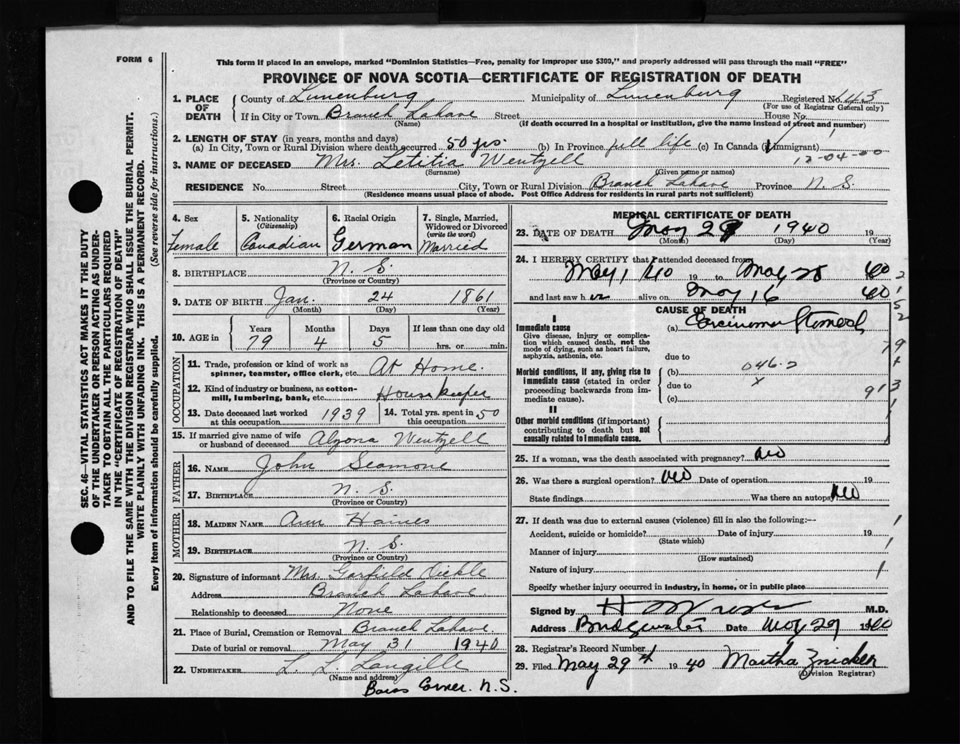 FORM 6
This form if placed in an envelope, marked "Dominion Statistics—Free, penalty for improper use $300," and properly addressed will pass through the mail "FREE"
PROVINCE OF NOVA SCOTIA—CERTIFICATE OF REGISTRATION OF DEATH
1. PLACE OF DEATH { County of Lunenburg Municipality of Lunenburg Registered No. 143
(For use of Registrar General only)
If in City or Town Branch Lahave Street House No.
(Name) (If death occurred in a hospital or institution, give the name instead of street and number)
2. LENGTH OF STAY (in years, months and days)
(a) In City, Town or Rural Division where death occurred 50 yrs. (b) In Province full life (c) In Canada (if immigrant)
12-04-00
3. NAME OF DECEASED Mrs. Letitia Wentzell
(Surname) (Given name or names)
RESIDENCE No. Street City, Town or Rural Division Branch Lahave Province N. S.
(Residence means usual place of abode. Post Office Address for residents in rural parts not sufficient)
4. Sex Female
5. Nationality (Citizenship) Canadian
6. Racial Origin German
7. Single, Married, Widowed or Divorced (write the word) Married
8. BIRTHPLACE N. S.
(Province or Country)
9. DATE OF BIRTH Jan. 24 1861
(Month) (Day) (Year)
10. AGE in Years 79 Months 4 Days 5 If less than one day old hrs. or min.
OCCUPATION
11. Trade, profession or kind of work as spinner, teamster, office clerk, etc. At Home.
12. Kind of industry or business, as cotton-mill, lumbering, bank, etc. Housekeeper
13. Date deceased last worked at this occupation 1939
14. Total yrs. spent in 50
15. If married give name of wife or husband of deceased Wentzell
FATHER
16. NAME John Seamone
17. BIRTHPLACE N. S.
(Province or Country)
MOTHER
18. MAIDEN NAME Ann
19. BIRTHPLACE N. S.
(Province or Country)
20. Signature of informant Mrs. Garfield
Address Branch Lahave
Relationship to deceased None
21. Place of Burial, Cremation or Removal Branch Lahave.
Date of burial or removal May 31 1940
22. UNDERTAKER L. L. Langille
(Name and address)
Barss Corner. N. S.
MEDICAL CERTIFICATE OF DEATH
23. DATE OF DEATH May 29 1940 19
(Month) (Day) (Year)
24. I HEREBY CERTIFY that I attended deceased from
May 1 40 19 to May 28 40
and last saw her alive on May 16 40
CAUSE OF DEATH
I
Immediate cause
Give disease, injury or complication which caused death, not the mode of dying, such as heart failure, asphyxia, asthenia, etc.
(a) Carcinoma Stomach
due to
Morbid conditions, if any, giving rise to immediate cause (stated in order proceeding backwards from immediate cause).
(b) 046.2
due to x
(c)
II
Other morbid conditions (if important) contributing to death but not causally related to immediate cause.
25. If a woman, was the death associated with pregnancy? No
26. Was there a surgical operation? No Date of operation 19
State findings Was there an autopsy No
27. If death was due to external causes (violence) fill in also the following:—
Accident, suicide or homicide? Date of injury 19
(State which)
Manner of injury
(How sustained)
Nature of injury
Specify whether injury occurred in industry, in home, or in public place
Signed by M.D.
Address Bridgewater Date May 29 1940
28. Registrar's Record Number
29. Filed May 29th 1940 Martha
(Division Registrar)
SEC. 46—VITAL STATISTICS ACT MAKES IT THE DUTY
OF THE UNDERTAKER OR PERSON ACTING AS UNDERTAKER
TO OBTAIN ALL THE PARTICULARS REQUIRED
IN THE "CERTIFICATE OF REGISTRATION OF DEATH"
AND TO FILE THE SAME WITH THE DIVISION REGISTRAR WHO SHALL ISSUE THE BURIAL PERMIT.
WRITE PLAINLY WITH UNFADING INK. THIS IS A PERMANENT RECORD.
Every item of information should be carefully supplied. (See reverse side for instructions.)